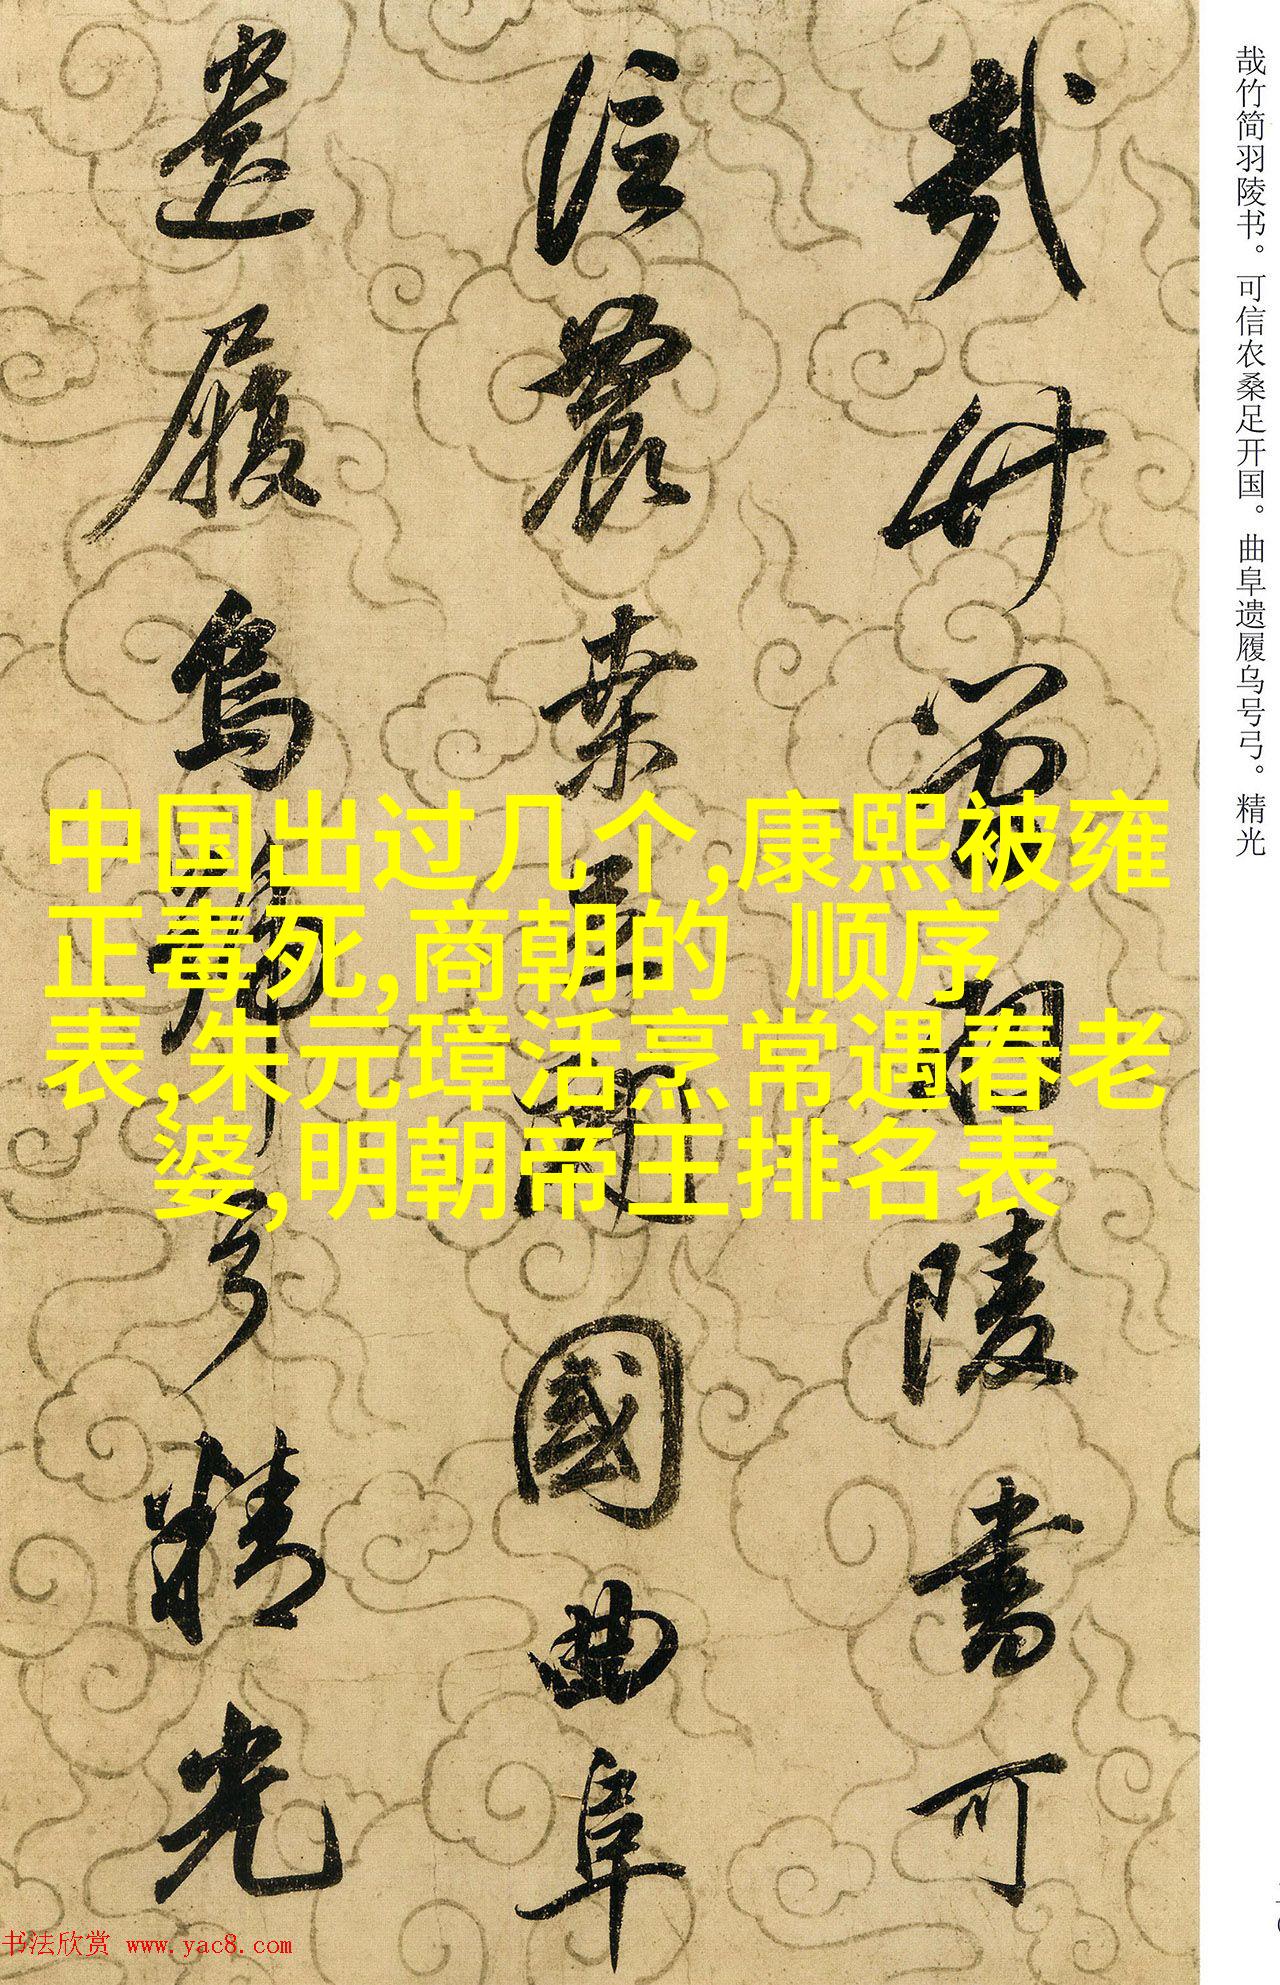 哉竹简羽陵书。可信农桑足开国。曲阜遗履乌号弓。精光
哉竹简羽陵書可
信農桑足開國曲阜
遺履烏號弓精光
中国出过几个,康熙被雍
正毒死,商朝的 顺序
表,朱元璋活烹常遇春老
婆,明朝帝王排名表
书法欣赏 www.yac8.com